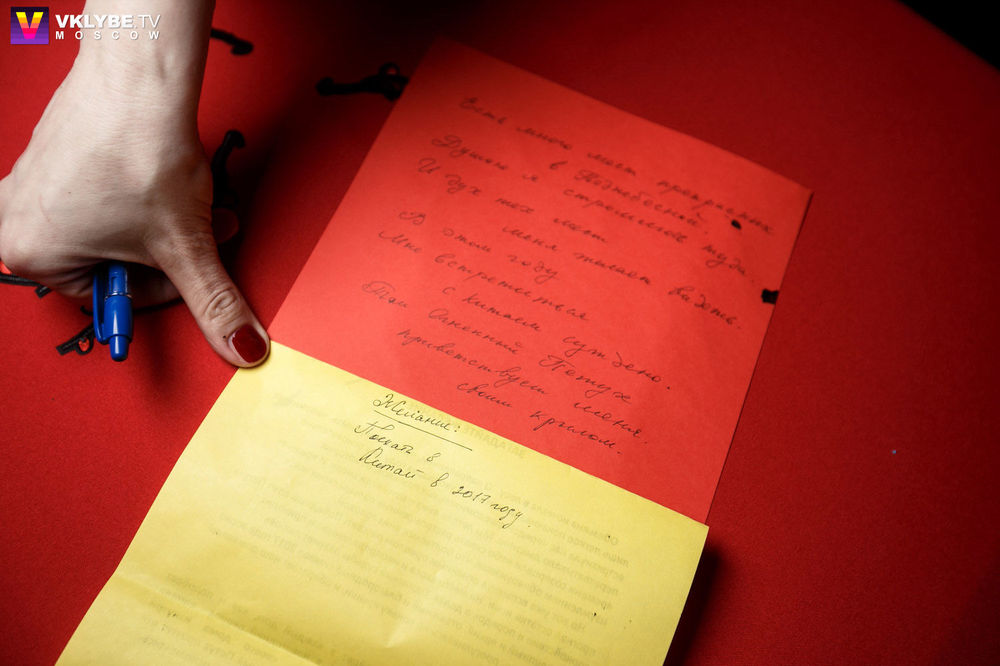 VKLYBE.TV
MOSCOW
Есть много мест прекрасных
в Поднебесной.
Душою я стремлюсь туда.
И дух тех мест
меня желает видеть.
В этом году
Мне встретиться
с Китаем суждено.
Там Огненный Петух
приветствует меня
своим крылом.
Желание:
Поехать в
Китай в 2017 году.